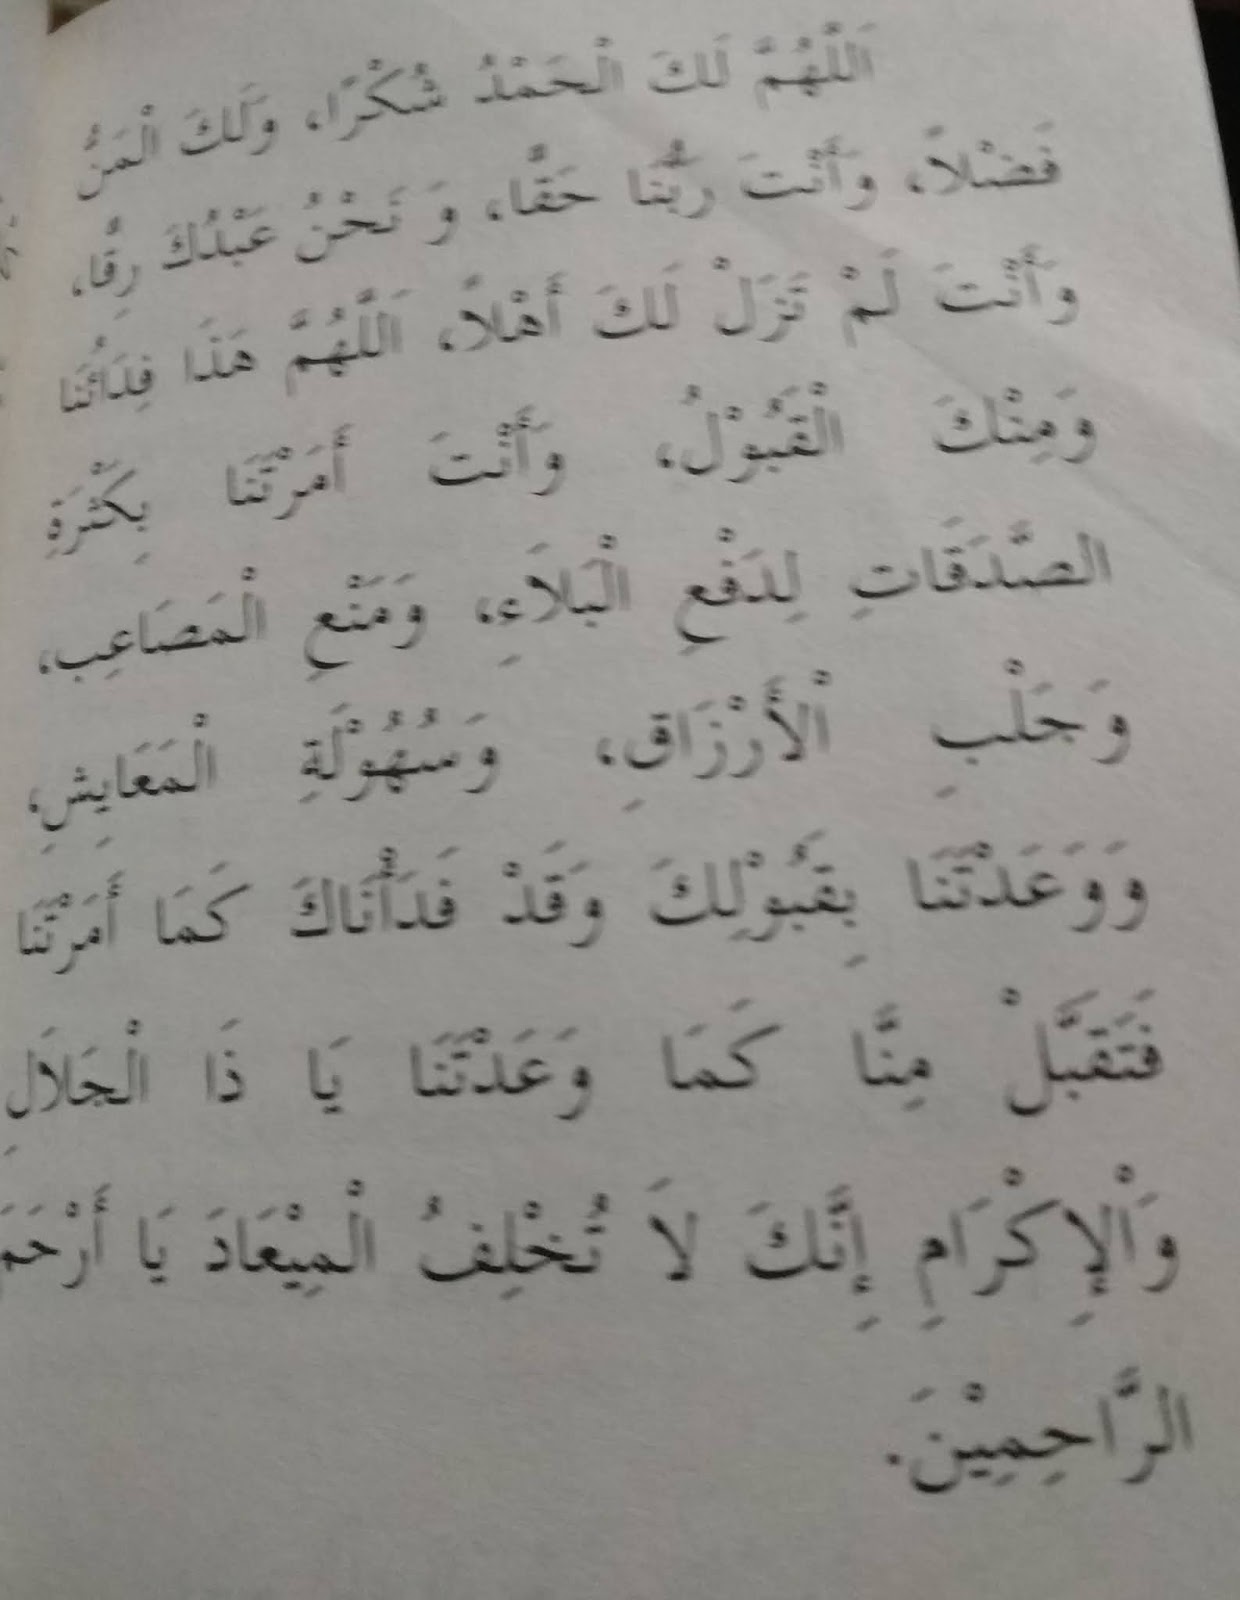 اَللّٰهُمَّ لَكَ الْحَمْدُ شُكْرًا، وَلَكَ الْمَنُّ
فَضْلاً، وَأَنْتَ رَبُّنَا حَقًّا، وَ نَحْنُ عَبْدُكَ رِقًّا،
وَأَنْتَ لَمْ تَزَلْ لَكَ أَهْلاً، اَللّٰهُمَّ هَذَا فِدَائُنَا
وَمِنْكَ الْقَبُوْلُ، وَأَنْتَ أَمَرْتَنَا بِكَثْرَةِ
الصَّدَقَاتِ لِدَفْعِ الْبَلاَءِ، وَمَنْعِ الْمَصَاعِبِ،
وَجَلْبِ الْأَرْزَاقِ، وَسُهُوْلَةِ الْمَعَايِشِ،
وَوَعَدْتَنَا بِقَبُوْلِكَ وَقَدْ فَدَأْنَاكَ كَمَا أَمَرْتَنَا
فَتَقَبَّلْ مِنَّا كَمَا وَعَدْتَنَا يَا ذَا الْجَلاَلِ
وَالْإِكْرَامِ إِنَّكَ لاَ تُخْلِفُ الْمِيْعَادَ يَا أَرْحَمَ
الرَّاحِمِيْنَ.